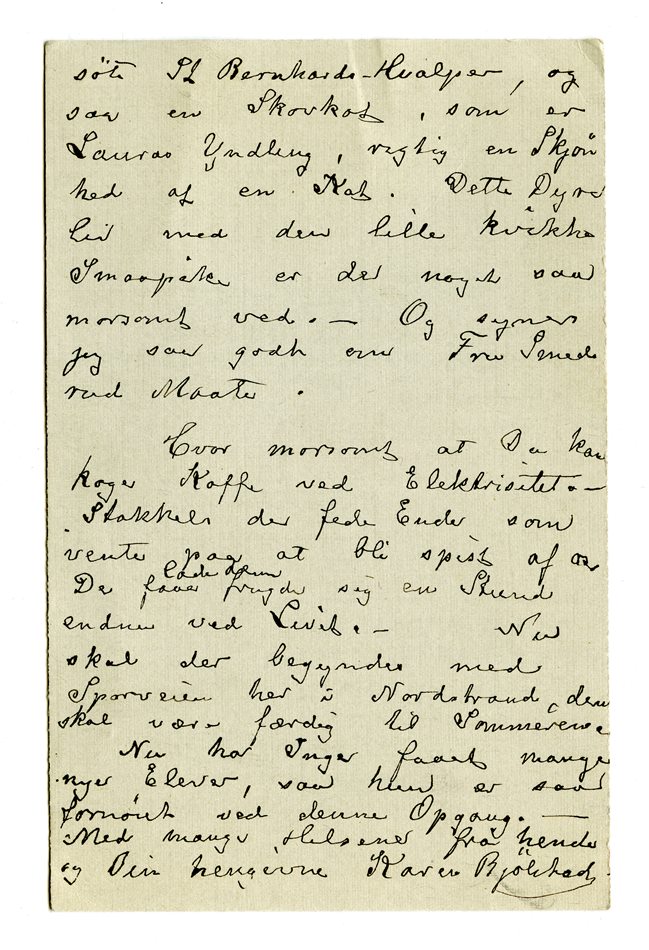 söte St Bernhards-Hvalper, og
saa en Skovkat, som er
Lauras Yndling, rigtig en Skjön
hed af en Kat. Dette Dyre
liv med den lille kvikke
Smaapike er der noget saa
morsomt ved. – Og synes
jeg saa godt om Fru Smeds
rud Maate.
Hvor morsomt at Du kan
koge Kaffe ved Elektrisitet. –
Stakkels de fede Ender som
vente paa at bli spist af os
lade dem
De faar fryde sig en Stund
endnu ved Livet. – Nu
skal der begyndes med
Sporveien her i Nordstrand, den
skal være færdig til Sommeren.
Nu har Inger faaet mange
nye Elever, saa hun er saa
fornöiet ved denne Opgang. –
Med mange Hilsener fra hende
og Din hengivne Karen Bjölstad.